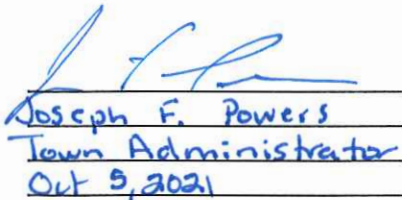 Joseph F. Powers
Town Administrator
Oct 5, 2021